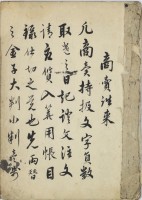 商賣往来
凡商賣持扱文字員数
取遣之日記證文注文
請取質入算用帳目
録仕切之覚也先両替
之金子大判小判壹歩